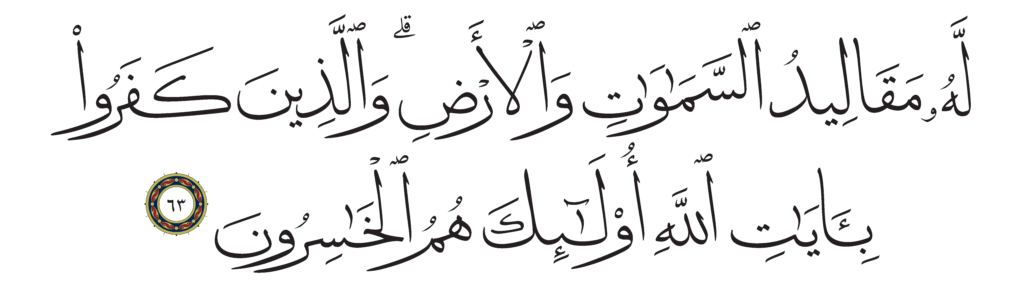 لَّهُۥ مَقَالِيدُ ٱلسَّمَـٰوَٰتِ وَٱلْأَرْضِ ۗ وَٱلَّذِينَ كَفَرُوا۟
بِـَٔايَـٰتِ ٱللَّهِ أُو۟لَـٰٓئِكَ هُمُ ٱلْخَـٰسِرُونَ ٦٣